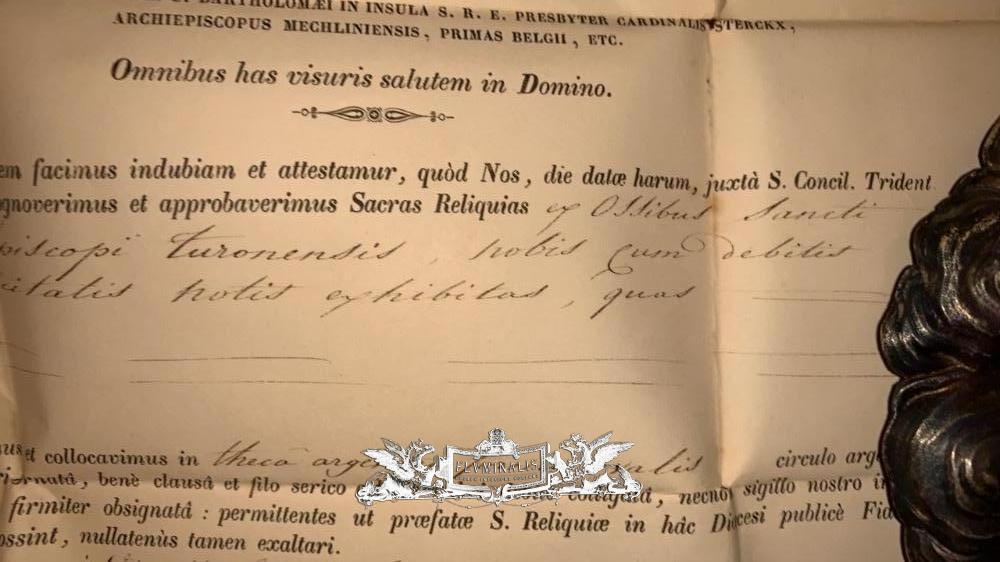 BARTHOLOMÆI IN INSULA S. R. E. PRESBYTER CARDINALIS STERCKX,
ARCHIEPISCOPUS MECHLINIENSIS, PRIMAS BELGII, ETC.
Omnibus has visuris salutem in Domino.
em facimus indubiam et attestamur, quòd Nos, die datæ harum, juxtà S. Concil. Trident
gnoverimus et approbaverimus Sacras Reliquias ex Ossibus Sancti
piscopi Turonensis, nobis cum debitis
citalis notis exhibitas, quas
et collocavimus in theca circulo arg
ornatâ, benè clausâ et filo serico colligatâ, necnon sigillo nostro i
firmiter obsignatâ : permittentes ut præfatæ S. Reliquiæ in hâc Diœcesi publicè Fid
ossint, nullatenùs tamen exaltari.
FLUMINALIS